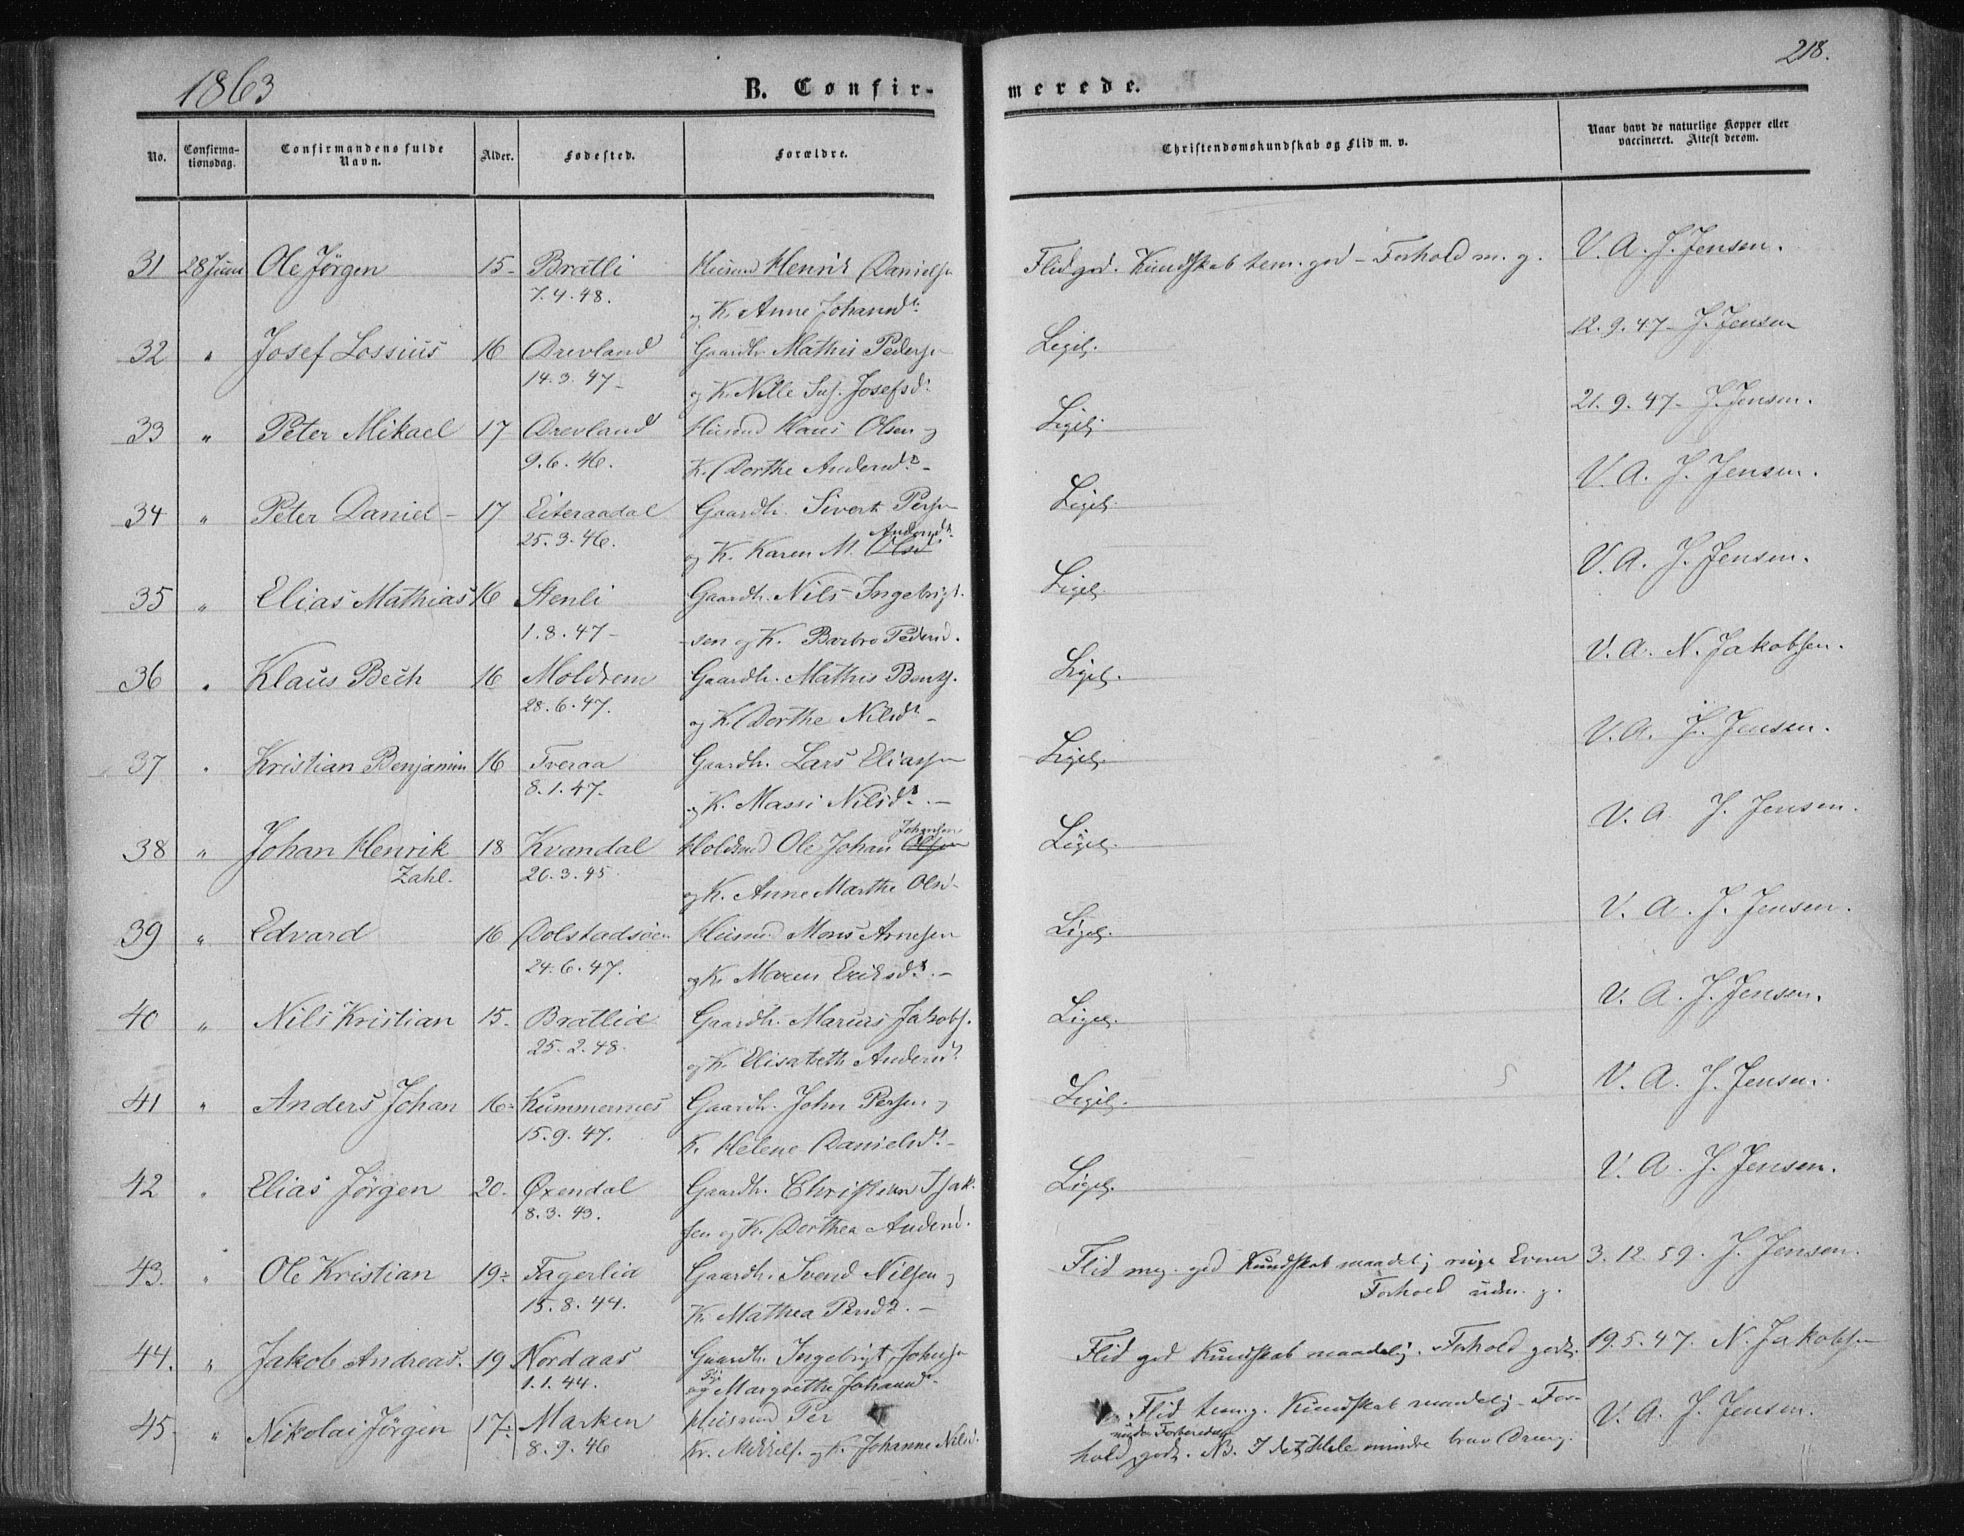 1863 B. Confirmerede. 218.
No. Confirmationsdag. Confirmandens fulde Navn. Alder. Fødested. Forældre. Christendomskundskab og Flid m. v. Naar havt de naturlige Kopper eller vaccineret. Attest derom.
31 28 Juni Ole Jörgen 15 - Bratli Husmd Henrik Danielsen Flid god. Kundskab tem. god - Forhold m. g. V. A. J. Jensen.
7.4.48. og K. Anne Johannd.
32 " Josef Lossius 16 Drevland Gaardbr. Mathis Pedersen Ligel. 12.9.47 - J. Jensen
14.3.47 - og K. Nille Josefsd.
33 " Peter Mikael 17 Drevland Husmd Hans Olsen og Ligel. 21.9.47 - J. Jensen.
9.6.46. K. Dorthe Andersd. -
34 " Peter Daniel - 17 Eiteraadal Gaardbr. Sivert Persen Ligel. V. A. J. Jensen.
25.3.46. og K. Karen M. Olsd Andersd.
35 " Elias Mathias 16 Stenli Gaardbr. Nils Ingebrigt- Ligel. V. A. J. Jensen.
1.8.47 - -sen og K. Barbro Pedersd.
36 " Klaus Bech 16 Moldrem Gaardbr. Mathis Bentz. Ligel. V. A. N. Jakobsen.
28.6.47. og K. Dorthe Nilsd. -
37 " Kristian Benjamin 16 Tveraa Gaardbr. Lars Eliassen Ligel. V. A. J. Jensen.
8.1.47. og K. Massi Nilsd. -
38 " Johan Henrik Zahl. 18 Kvandal Holdsmd Ole Johan Olsen Johansen Ligel. V. A. J. Jensen.
20.3.45. og K. Anne Marthe Olsd.
39 " Edvard 16 Dolstadsöen Husmd Mons Arnesen Ligel. V. A. J. Jensen.
24.6.47. og K. Maren Eriksd. -
40 " Nils Kristian 15. Bratlid Gaardbr. Marius Jakobs. Ligel. V. A. J. Jensen.
25.2.48. og K. Elisabeth Andersd.
41 " Anders Johan 16 Kummernes Gaardbr. John Persen og Ligel. V. A. J. Jensen.
15.9.47. K. Helene Danielsd. -
42 " Elias Jörgen 20. Øxendal Gaardbr. Christian Isak- Ligel. V. A. J. Jensen.
8.3.43. sen og K. Dorthea Andersd.
43. " Ole Kristian 19 Fagerlid Gaardbr. Svend Nilsen og Flid meg. god Kundskab maadelig ringe Evner 3.12.59. J. Jensen.
15.8.44. K. Mathea Persd. - Forhold udm. g.
44. " Jakob Andreas. 19 Nordaas Gaardbr. Ingebrigt Johnsen Flid god Kundskab maadelig. Forhold godt. 19.5.47. N. Jakobsen
1.1.44. og Margrethe Johannd.
45 - " Nikolai Jörgen 17 Marken Husmd Per Flid tem. g. Kundskab maadelig - For- V. A. J. Jensen.
8.9.46 Kr. Mikkels. og K. Johanne Nilsd. hold under Forberedelsen godt. NB. I det Hele mindre brav Dreng.